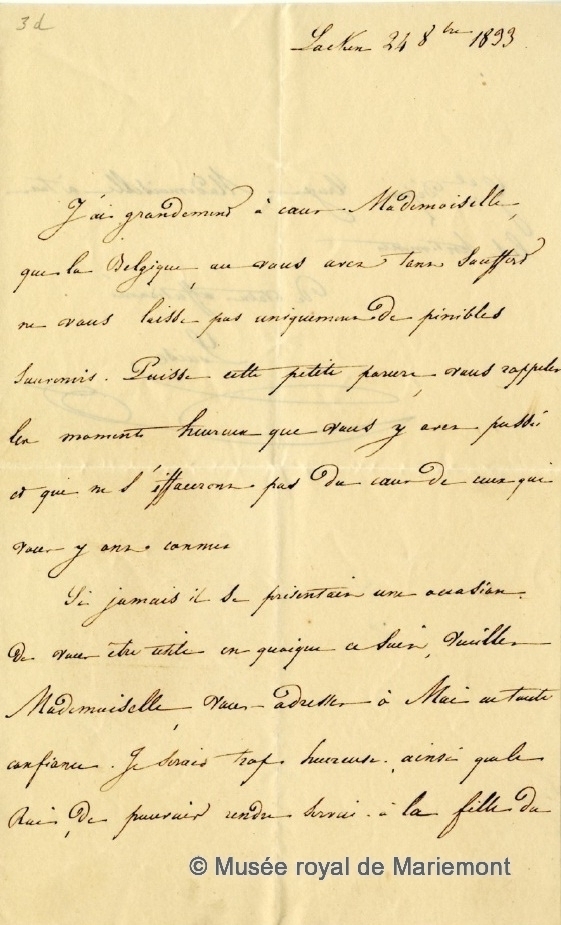 3d
Laeken 24 8bre 1893
J'ai grandement à cœur Mademoiselle,
que la Belgique, où vous avez tant souffert
ne vous laisse pas uniquement de pénibles
souvenirs. Puisse cette petite parure, vous rappeler
les moments heureux que vous y avez passés
et qui ne s'effaceront pas du cœur de ceux qui
vous y ont connue
Si jamais il se présentait une occasion
de vous être utile en quoique ce soit, veuillez
Mademoiselle, vous adresser à Moi en toute
confiance. Je serais trop heureuse, ainsi que le
Roi, de pouvoir rendre service à la fille du
© Musée royal de Mariemont